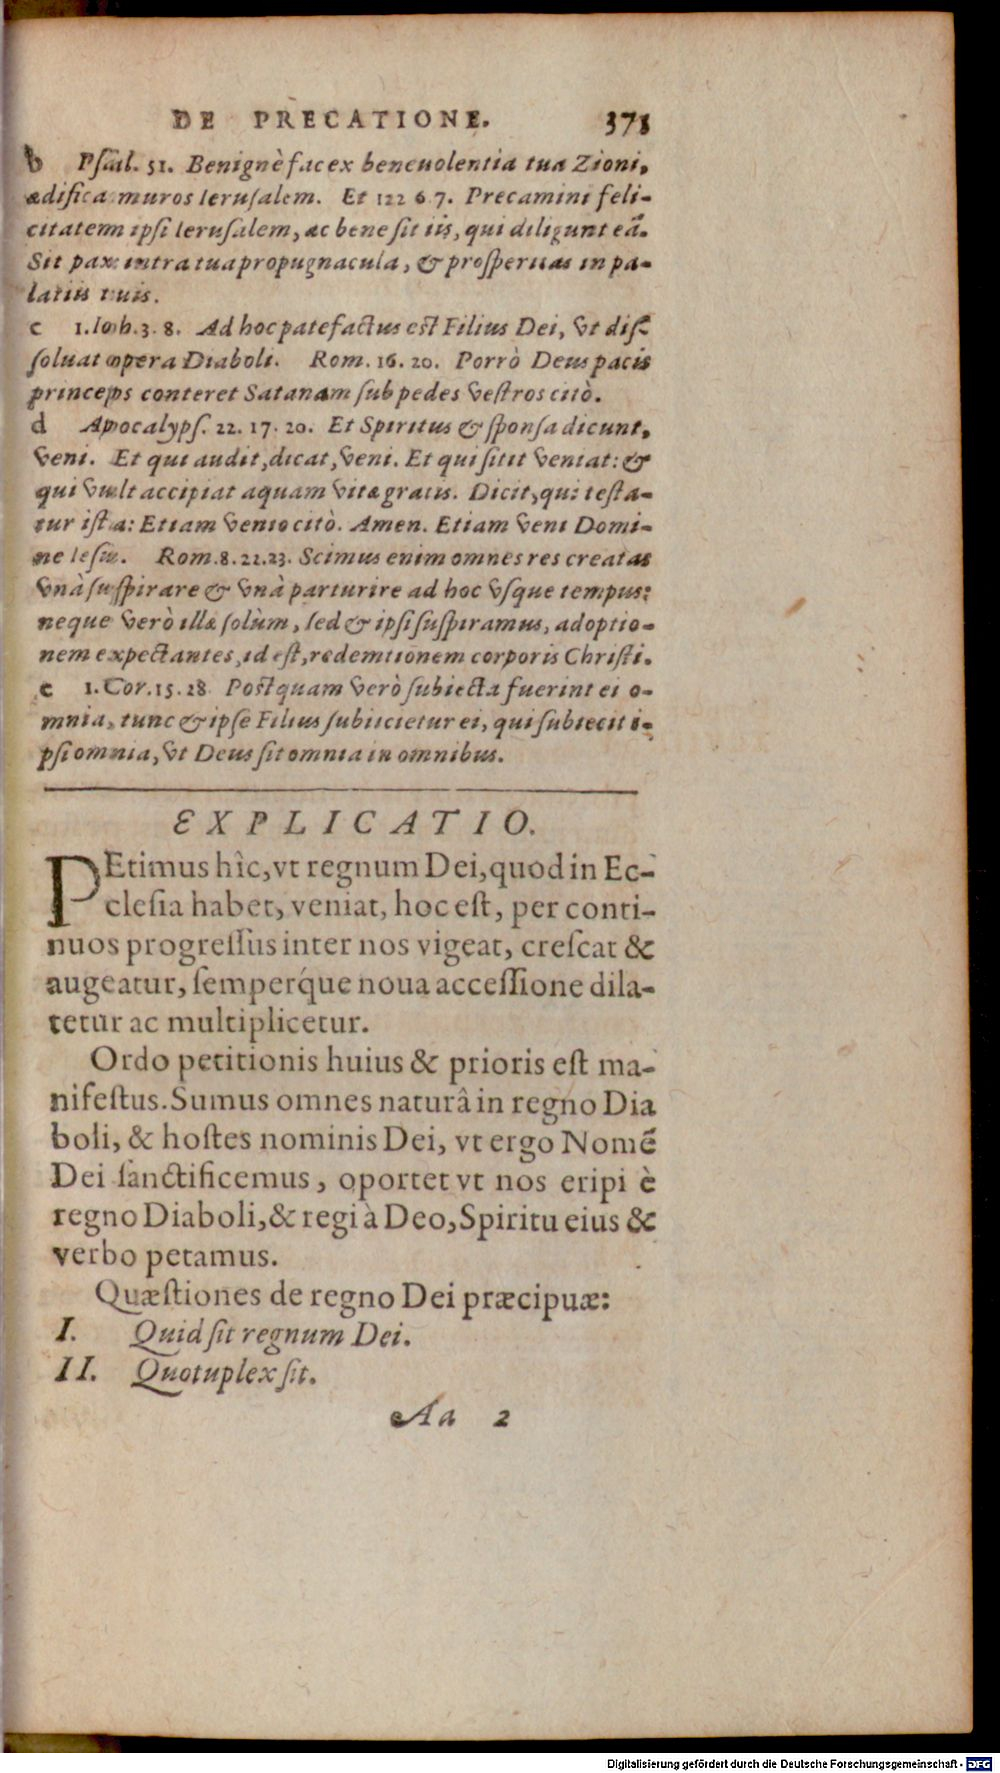 DE PRECATIONE. 371
b Psal. 51. Benignè fac ex beneuolentia tua Zioni,
ædifica muros Ierusalem. Et 122 6 7. Precamini feli-
citatem ipsi Ierusalem, ac bene sit iis, qui diligunt eã.
Sit pax intra tua propugnacula, & prosperitas in pa-
latiis tuis.
c 1. Ioh. 3. 8. Ad hoc patefactus est Filius Dei, vt dis-
soluat opera Diaboli. Rom. 16. 20. Porrò Deus pacis
princeps conteret Satanam sub pedes vestros citò.
d Apocalyps. 22. 17. 20. Et Spiritus & sponsa dicunt,
Veni. Et qui audit, dicat, Veni. Et qui sitit veniat: &
qui vult accipiat aquam vitæ gratis. Dicit, qui testa-
tur ista: Etiam venio citò. Amen. Etiam veni Domi-
ne Iesu. Rom. 8. 22. 23. Scimus enim omnes res creatas
vnà suspirare & vnà parturire ad hoc vsque tempus:
neque verò illæ solùm, sed & ipsi suspiramus, adoptio-
nem expectantes, id est, redemtionem corporis Christi.
e 1. Cor. 15. 28. Postquam verò subiecta fuerint ei o-
mnia, tunc & ipse Filius subiicietur ei, qui subiecit i-
psi omnia, vt Deus sit omnia in omnibus.
EXPLICATIO.
PEtimus hîc, vt regnum Dei, quod in Ec-
clesia habet, veniat, hoc est, per conti-
nuos progressus inter nos vigeat, crescat &
augeatur, semperq́ue noua accessione dila-
tetur ac multiplicetur.
Ordo petitionis huius & prioris est ma-
nifestus. Sumus omnes naturâ in regno Dia
boli, & hostes nominis Dei, vt ergo Nomẽ
Dei sanctificemus, oportet vt nos eripi è
regno Diaboli, & regi à Deo, Spiritu eius &
verbo petamus.
Quæstiones de regno Dei præcipuæ:
I. Quid sit regnum Dei.
II. Quotuplex sit.
Aa 2
Digitalisierung gefördert durch die Deutsche Forschungsgemeinschaft - DFG